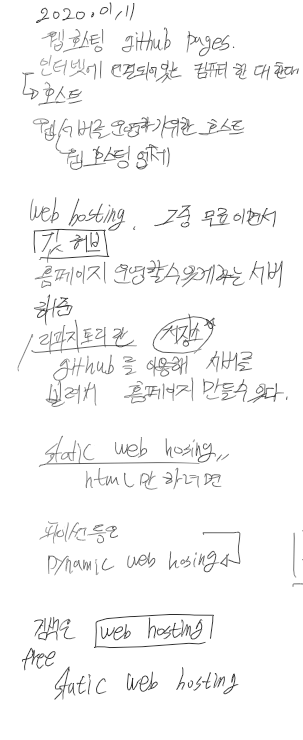 2020.01.11
웹 호스팅 github pages.
인터넷에 연결되어있는 컴퓨터 한 대 한대
호스트
웹서버를 운영하기위한 호스트
웹 호스팅 업체
web hosting, 그중 무료이면서
깃 허브
홈페이지 운영할수 있게하는 서버
리파지토리란 저장소
github를 이용해 서버를
빌려서 홈페이지 만들수 있다.
static web hosing
html만 하려면
파이선등은
Dynamic web hosing
검색은 web hosting
free
static web hosting